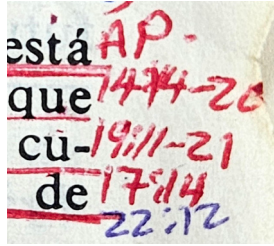 está ÁP.
que 14:14-20
cú- 19:11-21
de 17:14
22:12